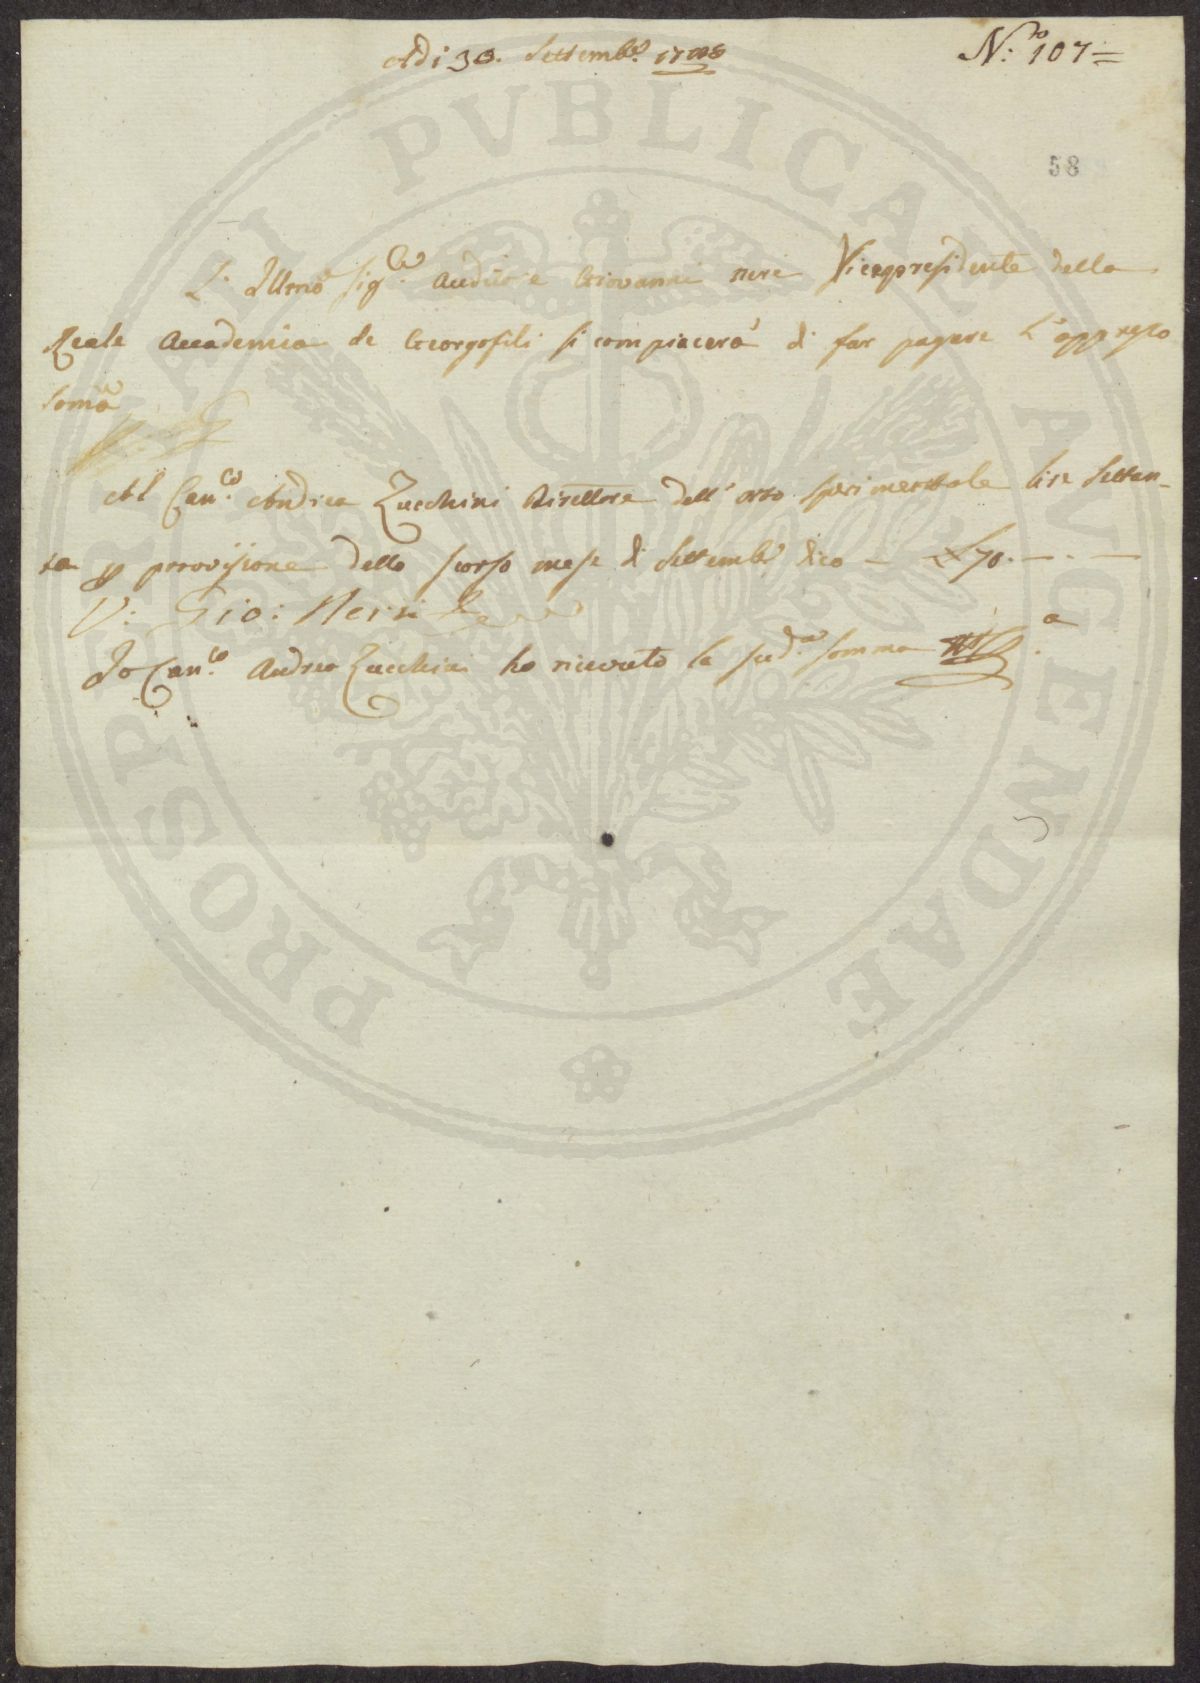 Adi 30. Settemb.e
N.ro 107=
58
L' Illmo Sig.re Auditore Giovanni Neri Vicepresidente della
Reale Accademia de Georgofili si compiacerà di far pagare l'appresso
somā
Al Can.co Andrea Zucchini Direttore dell' orto sperimentale lire settan-
ta p provvisione dello scorso mese di Settemb.e dico - £ 70. — . —
V: Gio: Neri
Io Can.co Andrea Zucchini ho ricevuto la sud.a somma
PROSPERITATI PVBLICAE AVGENDAE